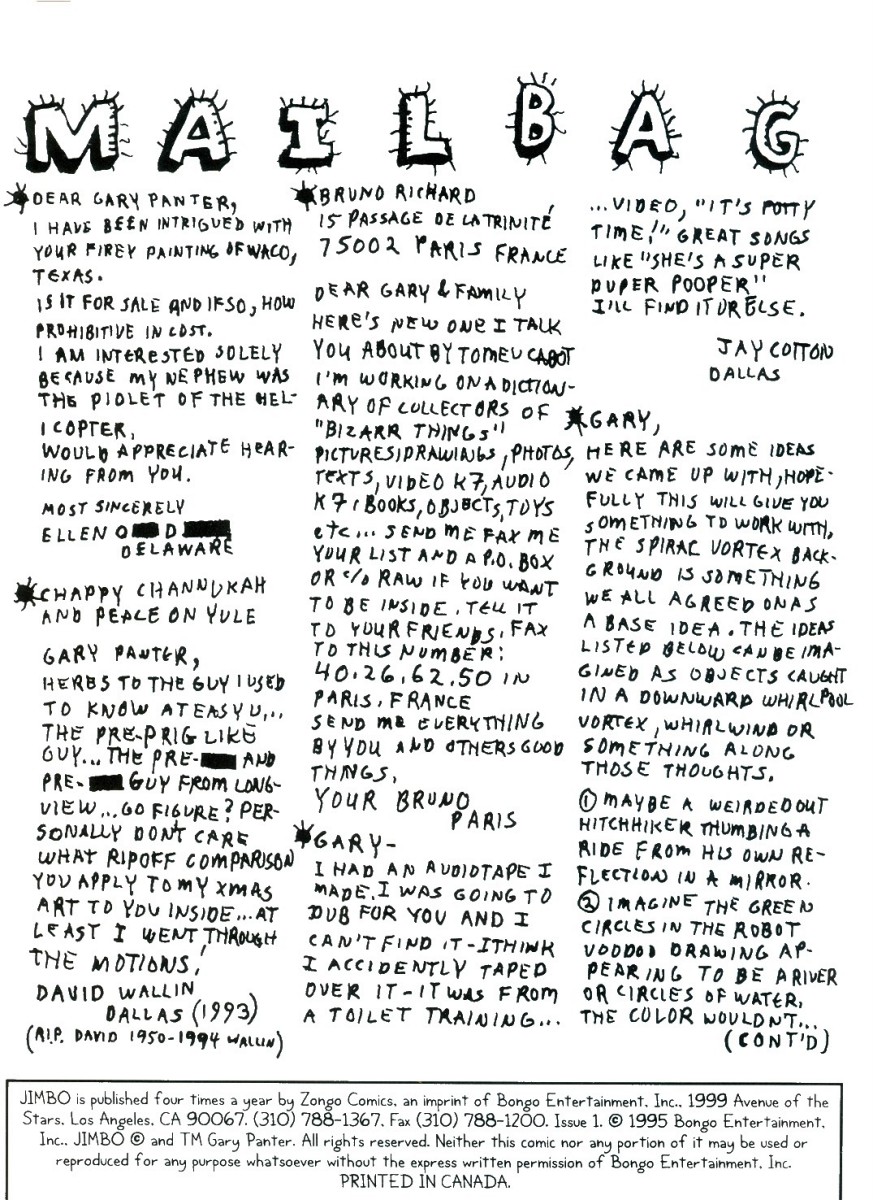 MAILBAG
DEAR GARY PANTER,
I HAVE BEEN INTRIGUED WITH
YOUR FIREY PAINTING OF WACO,
TEXAS.
IS IT FOR SALE AND IF SO, HOW
PROHIBITIVE IN COST.
I AM INTERESTED SOLELY
BECAUSE MY NEPHEW WAS
THE PIOLET OF THE HEL-
ICOPTER,
WOULD APPRECIATE HEAR-
ING FROM YOU.
MOST SINCERELY
ELLEN O D
DELAWARE
CHAPPY CHANNUKAH
AND PEACE ON YULE
GARY PANTER,
HERES TO THE GUY I USED
TO KNOW AT EASY U,..
THE PRE-PRIG LIKE
GUY... THE PRE- AND
PRE- GUY FROM LONG-
VIEW... GO FIGURE? PER-
SONALLY DON'T CARE
WHAT RIPOFF COMPARISON
YOU APPLY TO MY XMAS
ART TO YOU INSIDE... AT
LEAST I WENT THROUGH
THE MOTIONS!
DAVID WALLIN
DALLAS (1993)
(R.I.P. DAVID 1950-1994 WALLIN)
BRUNO RICHARD
15 PASSAGE DE LA TRINITÉ
75002 PARIS FRANCE
DEAR GARY & FAMILY
HERE'S NEW ONE I TALK
YOU ABOUT BY TOMEU CABOT
I'M WORKING ON A DICTION-
ARY OF COLLECTORS OF
"BIZARR THINGS"
PICTURES/DRAWINGS, PHOTOS,
TEXTS, VIDEO K7, AUDIO
K7, BOOKS, OBJECTS, TOYS
etc... SEND ME FAX ME
YOUR LIST AND A P.O. BOX
OR c/o RAW IF YOU WANT
TO BE INSIDE. TELL IT
TO YOUR FRIENDS, FAX
TO THIS NUMBER:
40.26.62.50 IN
PARIS, FRANCE
SEND ME EVERYTHING
BY YOU AND OTHERS GOOD
THINGS,
YOUR BRUNO
PARIS
GARY-
I HAD AN AUDIOTAPE I
MADE. I WAS GOING TO
DUB FOR YOU AND I
CAN'T FIND IT-I THINK
I ACCIDENTLY TAPED
OVER IT-IT WAS FROM
A TOILET TRAINING...
...VIDEO, "IT'S POTTY
TIME!" GREAT SONGS
LIKE "SHE'S A SUPER
DUPER POOPER"
I'LL FIND IT OR ELSE.
JAY COTTON
DALLAS
GARY,
HERE ARE SOME IDEAS
WE CAME UP WITH, HOPE-
FULLY THIS WILL GIVE YOU
SOMETHING TO WORK WITH,
THE SPIRAL VORTEX BACK-
GROUND IS SOMETHING
WE ALL AGREED ON AS
A BASE IDEA. THE IDEAS
LISTED BELOW CAN BE IMA-
GINED AS OBJECTS CAUGHT
IN A DOWNWARD WHIRLPOOL
VORTEX, WHIRLWIND OR
SOMETHING ALONG
THOSE THOUGHTS.
① MAYBE A WEIRDED OUT
HITCHHIKER THUMBING A
RIDE FROM HIS OWN RE-
FLECTION IN A MIRROR.
② IMAGINE THE GREEN
CIRCLES IN THE ROBOT
VOODOO DRAWING AP-
PEARING TO BE A RIVER
OR CIRCLES OF WATER,
THE COLOR WOULDN'T...
(CONT'D)
JIMBO is published four times a year by Zongo Comics, an imprint of Bongo Entertainment, Inc., 1999 Avenue of the
Stars, Los Angeles, CA 90067. (310) 788-1367, Fax (310) 788-1200. Issue 1. © 1995 Bongo Entertainment,
Inc.. JIMBO © and TM Gary Panter. All rights reserved. Neither this comic nor any portion of it may be used or
reproduced for any purpose whatsoever without the express written permission of Bongo Entertainment, Inc.
PRINTED IN CANADA.